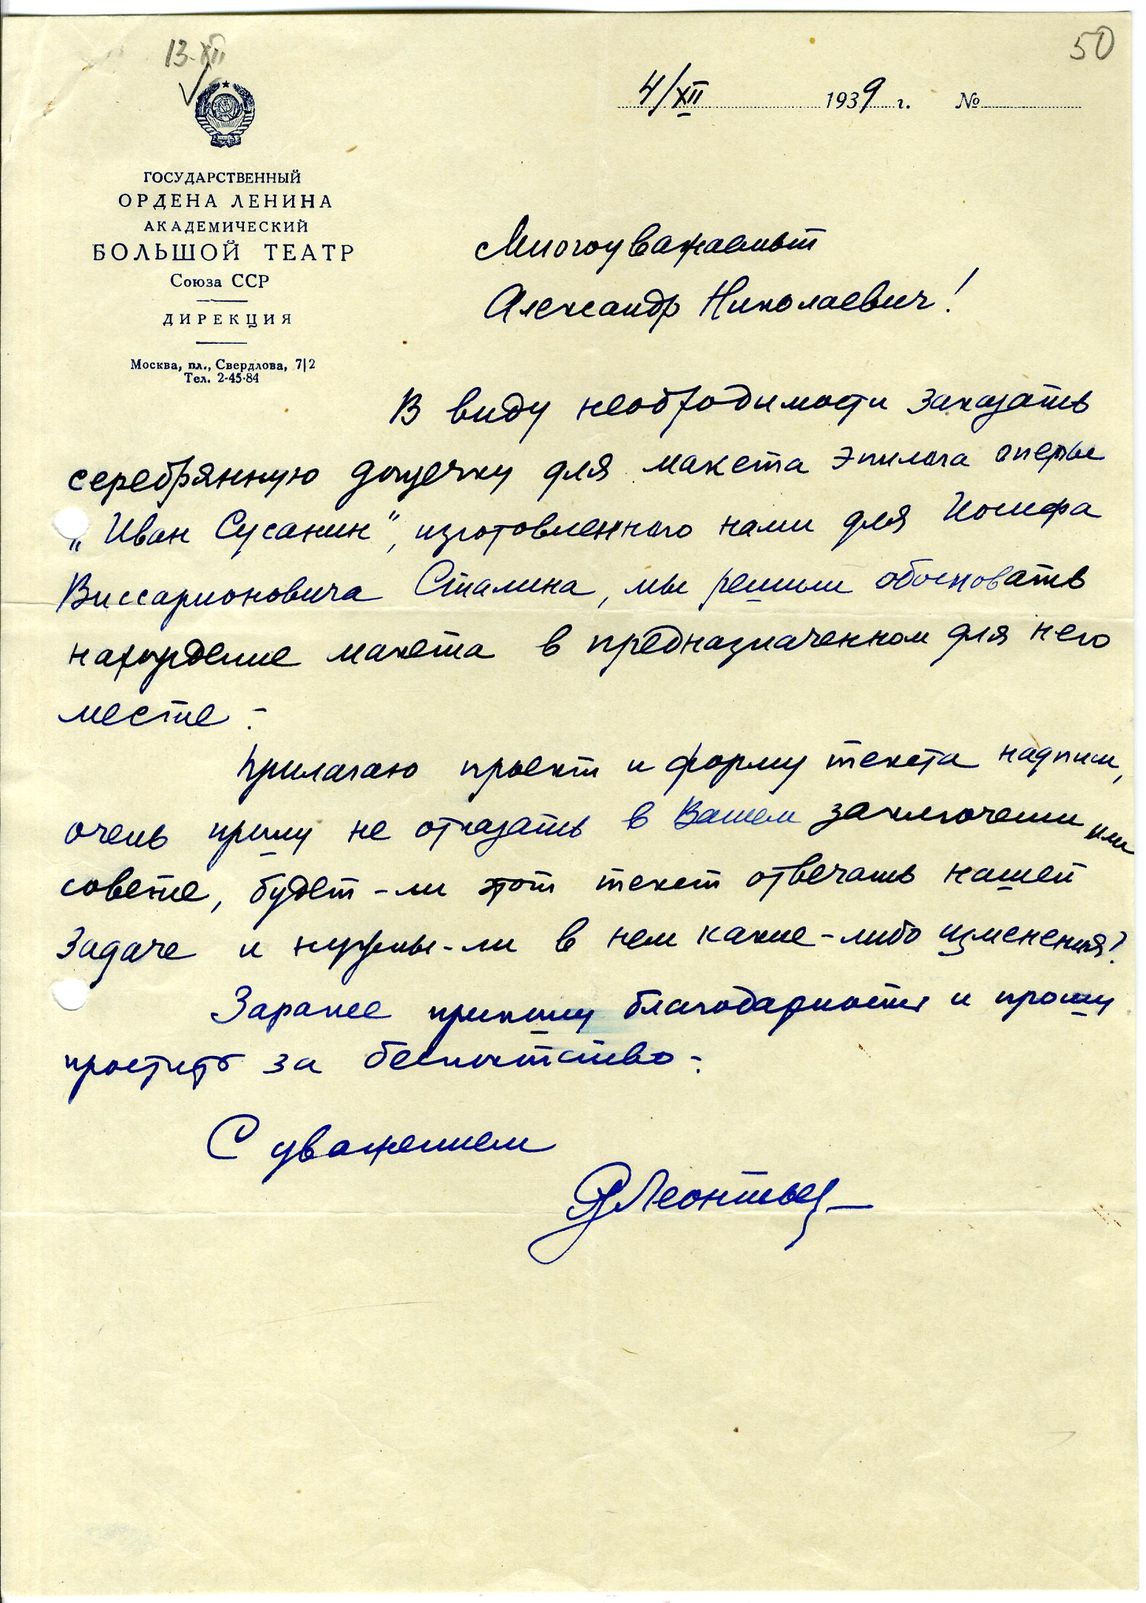 13-XII
50
4/XII 1939 г. №
ГОСУДАРСТВЕННЫЙ
ОРДЕНА ЛЕНИНА
АКАДЕМИЧЕСКИЙ
БОЛЬШОЙ ТЕАТР
Союза ССР
ДИРЕКЦИЯ
Москва, пл., Свердлова, 7|2
Тел. 2-45-84
Многоуважаемый
Александр Николаевич!
В виду необходимости заказать
серебрянную дощечку для макета эпилога оперы
„Иван Сусанин", изготовленного нами для Иосифа
Виссарионовича Сталина, мы решили обосновать
нахождение макета в предназначенном для него
месте -
Прилагаю проект и форму текста надписи,
очень прошу не отказать в Вашем заключении или
совете, будет-ли этот текст отвечать нашей
задаче и нужны-ли в нем какие-либо изменения?
Заранее приношу благодарность и прошу
простить за беспокойство -
С уважением
Леонтьев